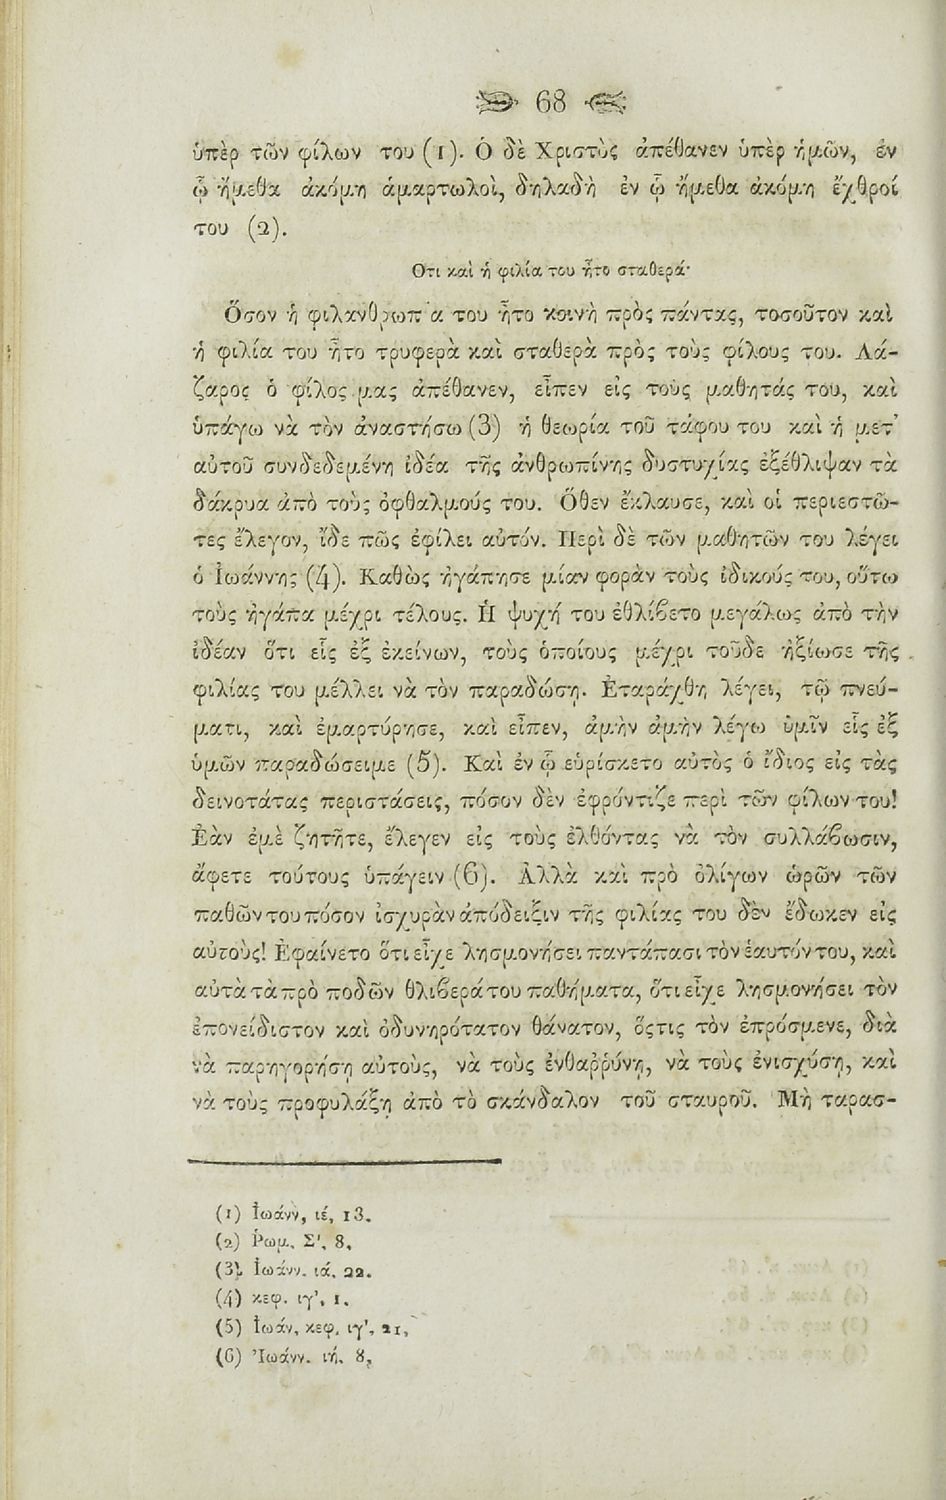 68
ὑπὲρ τῶν φίλων του (1). Ὁ δὲ Χριστὸς ἀπέθανεν ὑπὲρ ἡμῶν, ἐν
ᾧ ἤμεθα ἀκόμη ἁμαρτωλοὶ, δηλαδὴ ἐν ᾧ ἤμεθα ἀκόμη ἔχθροί
του (2).
Οτι καὶ ἡ φιλία του ἦτο σταθερά·
Ὅσον ἡ φιλανθρωπία του ἦτο κοινὴ πρὸς πάντας, τοσοῦτον καὶ
ἡ φιλία του ἦτο τρυφερὰ καὶ σταθερὰ πρὸς τοὺς φίλους του. Λά-
ζαρος ὁ φίλος μας ἀπέθανεν, εἶπεν εἰς τοὺς μαθητάς του, καὶ
ὑπάγω νὰ τὸν ἀναστήσω (3) ἡ θεωρία τοῦ τάφου του καὶ ἡ μετ'
αὐτοῦ συνδεδεμένη ἰδέα τῆς ἀνθρωπίνης δυστυχίας ἐξέθλιψαν τὰ
δάκρυα ἀπὸ τοὺς ὀφθαλμούς του. Ὅθεν ἔκλαυσε, καὶ οἱ περιεστῶ-
τες ἔλεγον, ἴδε πῶς ἐφίλει αὐτόν. Περὶ δὲ τῶν μαθητῶν του λέγει
ὁ Ἰωάννης (4). Καθὼς ἠγάπησε μίαν φορὰν τοὺς ἰδικούς του, οὕτω
τοὺς ἠγάπα μέχρι τέλους. Ἡ ψυχή του ἐθλίβετο μεγάλως ἀπὸ τὴν
ἰδέαν ὅτι εἷς ἐξ ἐκείνων, τοὺς ὁποίους μέχρι τοῦδε ἠξίωσε τῆς
φιλίας του μέλλει νὰ τὸν παραδώσῃ. Ἐταράχθη λέγει, τῷ πνεύ-
ματι, καὶ ἐμαρτύρησε, καὶ εἶπεν, ἀμὴν ἀμὴν λέγω ὑμῖν εἷς ἐξ
ὑμῶν παραδώσειμε (5). Καὶ ἐν ᾧ εὑρίσκετο αὐτὸς ὁ ἴδιος εἰς τὰς
δεινοτάτας περιστάσεις, πόσον δὲν ἐφρόντιζε περὶ τῶν φίλων του!
Ἐὰν ἐμὲ ζητῆτε, ἔλεγεν εἰς τοὺς ἐλθόντας νὰ τὸν συλλάβωσιν,
ἄφετε τούτους ὑπάγειν (6). Ἀλλὰ καὶ πρὸ ὀλίγων ὡρῶν τῶν
παθῶν του πόσον ἰσχυρὰν ἀπόδειξιν τῆς φιλίας του δὲν ἔδωκεν εἰς
αὐτους! Ἐφαίνετο ὅτι εἶχε λησμονήσει παντάπασι τὸν ἑαυτόν του, καὶ
αὐτὰ τὰ πρὸ ποδῶν θλιβερά του παθήματα, ὅτι εἶχε λησμονήσει τὸν
ἐπονείδιστον καὶ ὀδυνηρότατον θάνατον, ὅςτις τὸν ἐπρόσμενε, διὰ
νὰ παρηγορήσῃ αὐτοὺς, νὰ τοὺς ἐνθαῤῥύνῃ, νὰ τοὺς ἐνισχύσῃ, καὶ
νὰ τοὺς προφυλάξῃ ἀπὸ τὸ σκάνδαλον τοῦ σταυροῦ. Μὴ ταρασ-
(1) Ἰωάνν, ιέ, 13.
(2) Ῥωμ. Σ', 8,
(3) Ἰωάνν. ιά, 22.
(4) κεφ. ιγ', 1.
(5) Ἰωάν, κεφ. ιγ', 21,
(6) Ἰωάνν. ιή. 8,